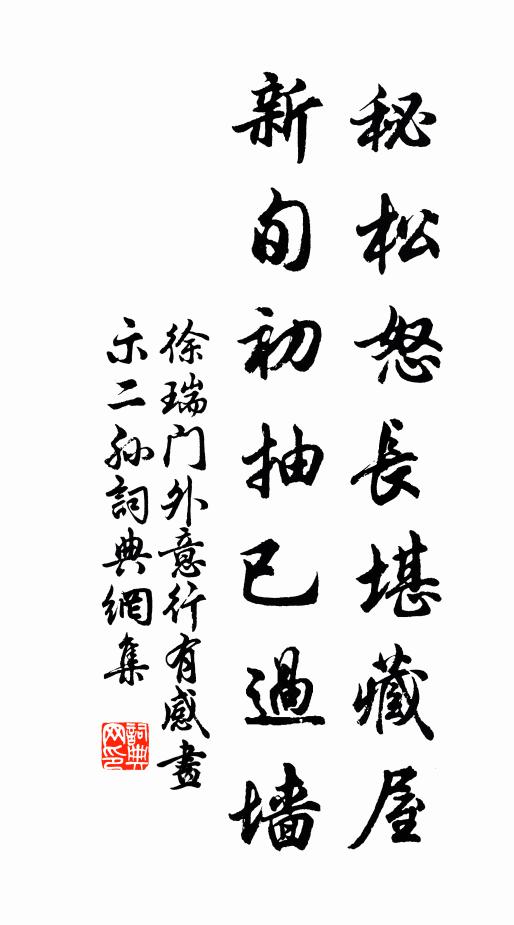 秘松怒長堪藏屋
新旬初抽已過墙
徐瑞门外意行有感畫
示二孙詞典網集
詞典
网印